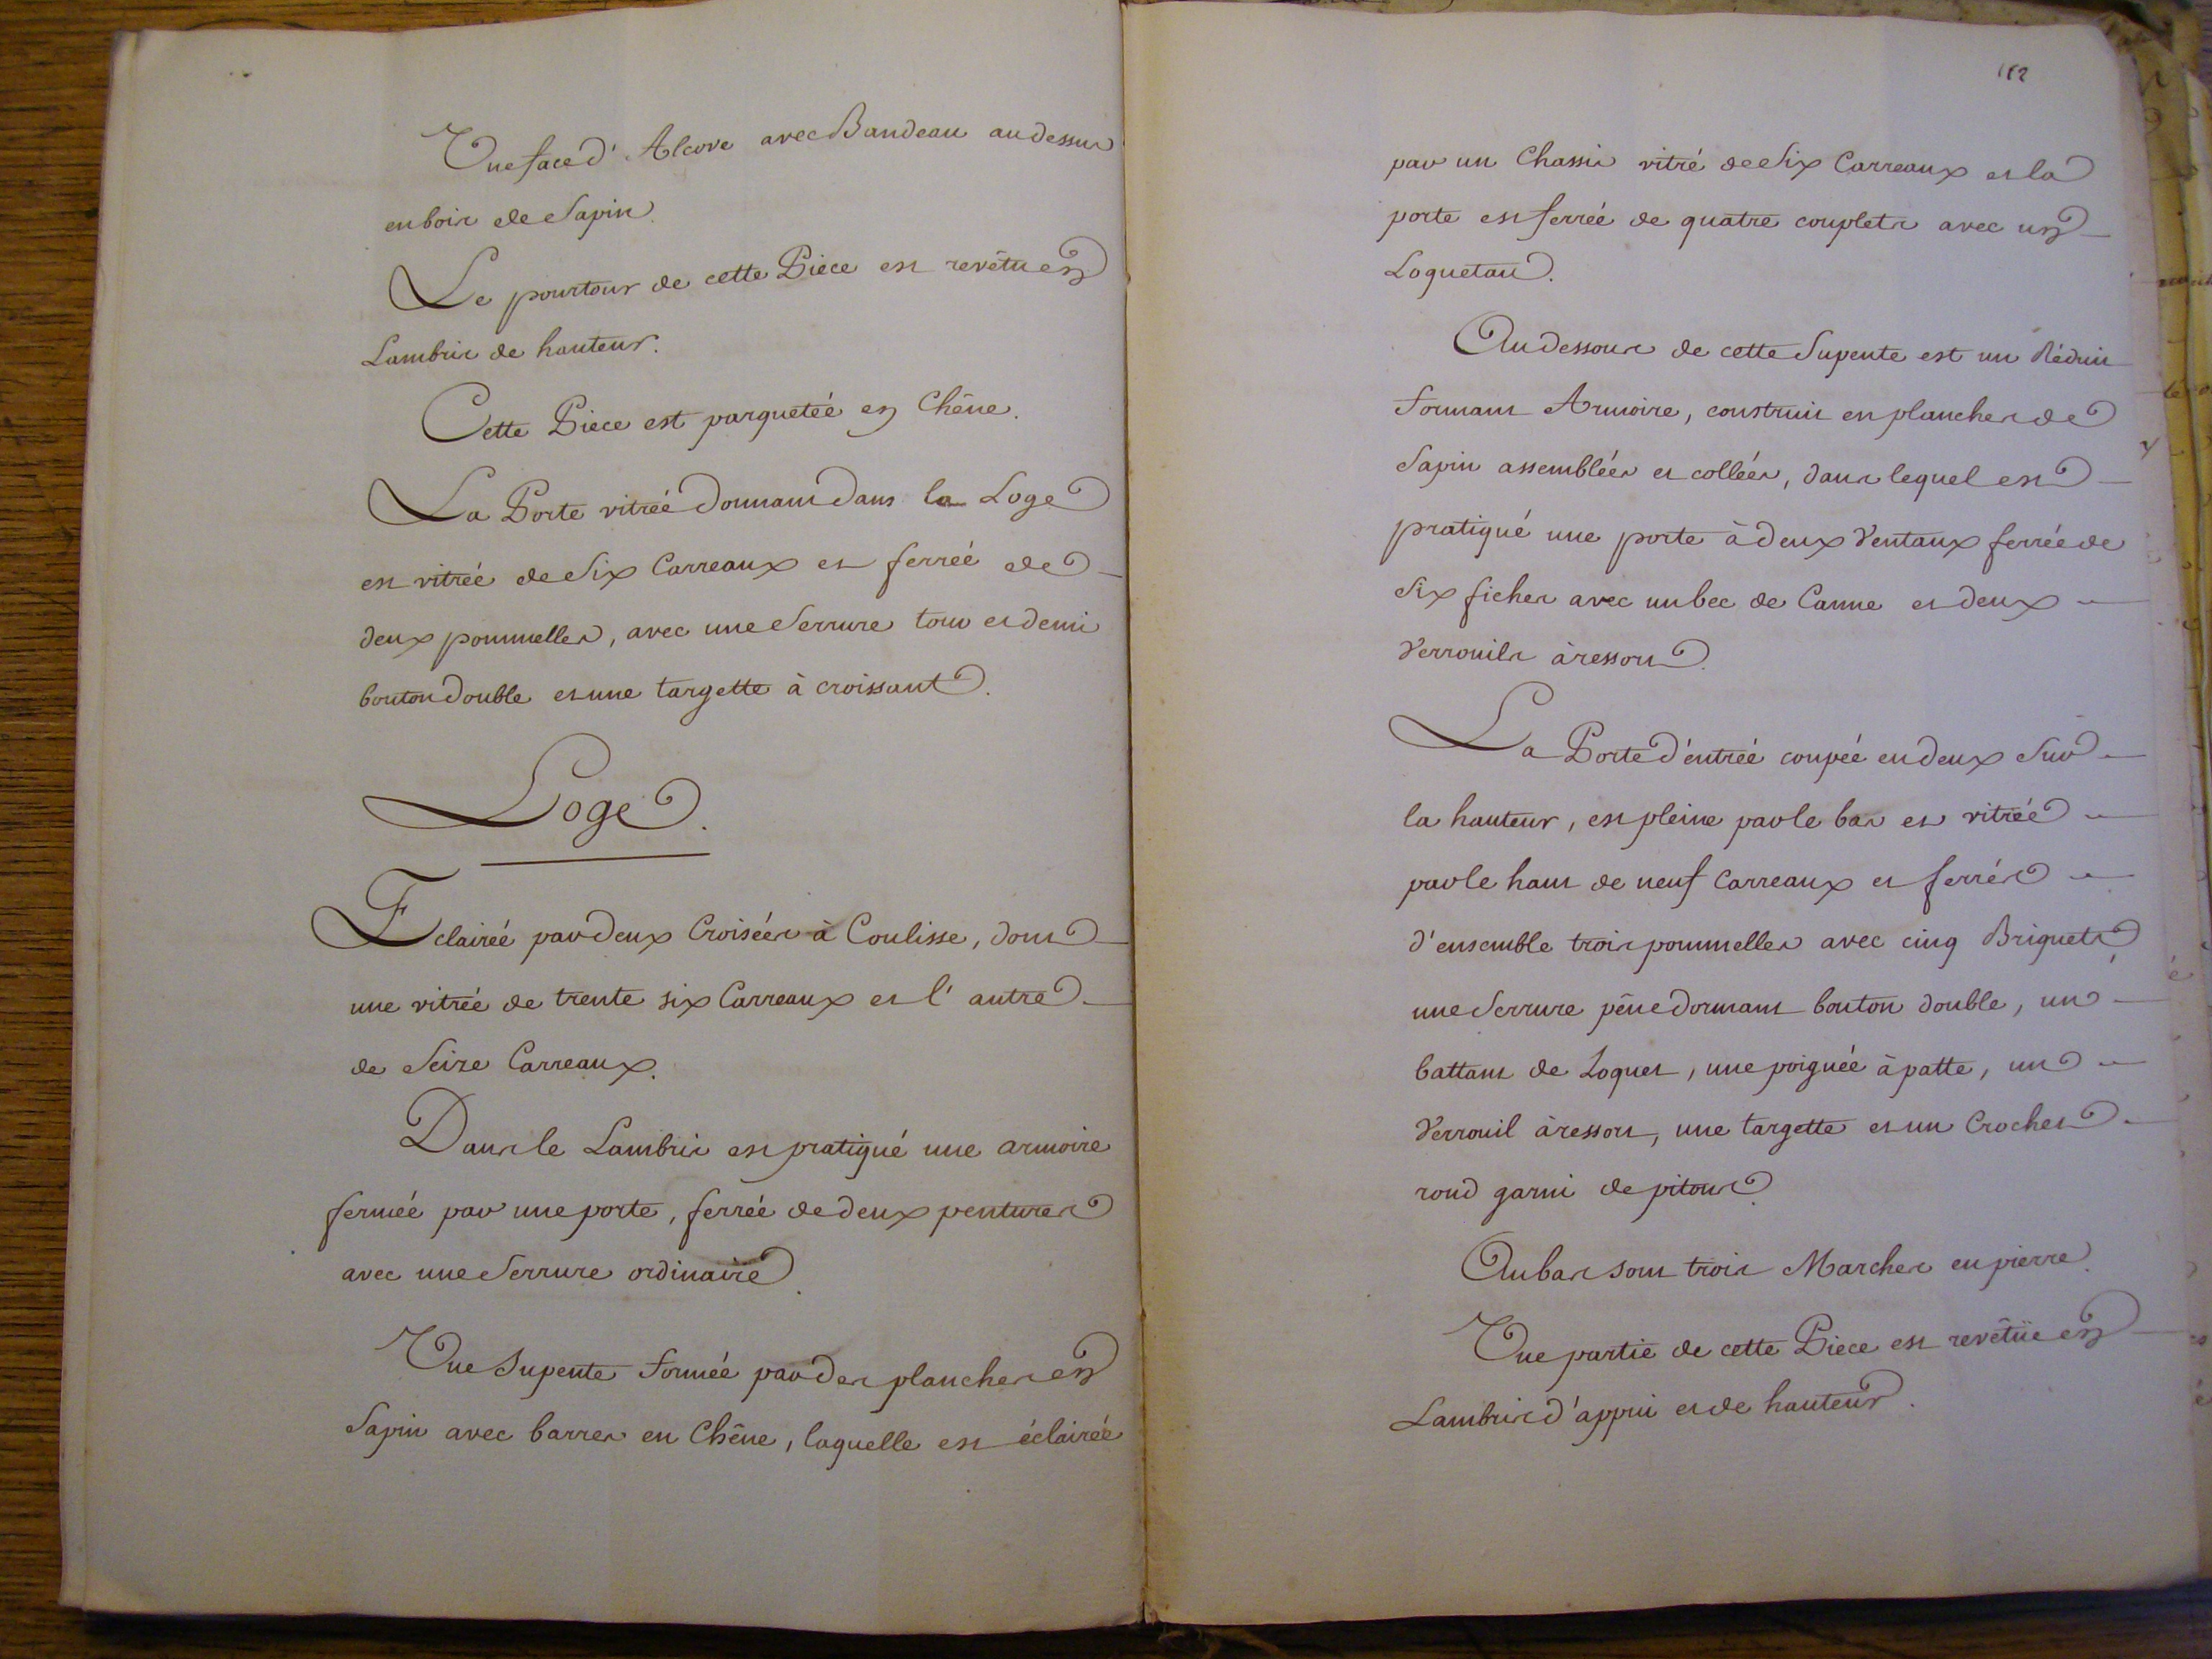 Une face d'Alcove avec Bandeau au dessus
en bois de Sapin.
Le pourtour de cette Piece est revêtu en
Lambris de hauteur.
Cette Piece est parquetée en Chêne.
La Porte vitrée donnant dans la Loge
est vitrée de Six Carreaux et ferrée de
deux pommelles, avec une Serrure tour et demi
bouton double et une targette à croissant.
Loge.
Eclairée par deux Croisées à Coulisse, dont
une vitrée de trente six Carreaux et l'autre
de Seize Carreaux.
Dans le Lambris est pratiqué une armoire
fermée par une porte, ferrée de deux pentures
avec une Serrure ordinaire.
Une Supente formée par des planches en
Sapin avec barres en Chêne, laquelle est éclairée
182
par un Chassis vitré de Six Carreaux et la
porte est ferrée de quatre couplets avec un
Loquetau.
Au dessous de cette Supente est un Réduit
formant Armoire, construit en planches de
Sapin assemblées et collées, dans lequel est
pratiqué une porte à deux Ventaux ferrée de
Six fiches avec un bec de Canne et deux
Verrouils à ressort.
La Porte d'entrée coupée en deux Sur
la hauteur, est pleine par le bas et vitrée
par le haut de neuf Carreaux et ferrés
d'ensemble trois pommelles avec cinq Briquets,
une Serrure pêne dormant bouton double, un
battant de Loquet, une poignée à patte, un
Verrouil à ressort, une targette et un Crochet
rond garni de pitons.
Au bas sont trois Marches en pierre.
Une partie de cette Piece est revêtüe en
Lambris d'appui et de hauteur.